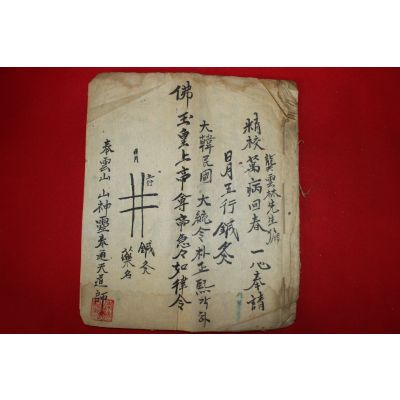 龔雲林先生編
精校 萬病回春 一心奉請
日月五行鍼灸
大韓民國 大統令 朴正熙각하
佛玉皇上帝尊帝急々如律令
日月
鍼灸
藥名
泰雲山 山神靈 泰通天道師